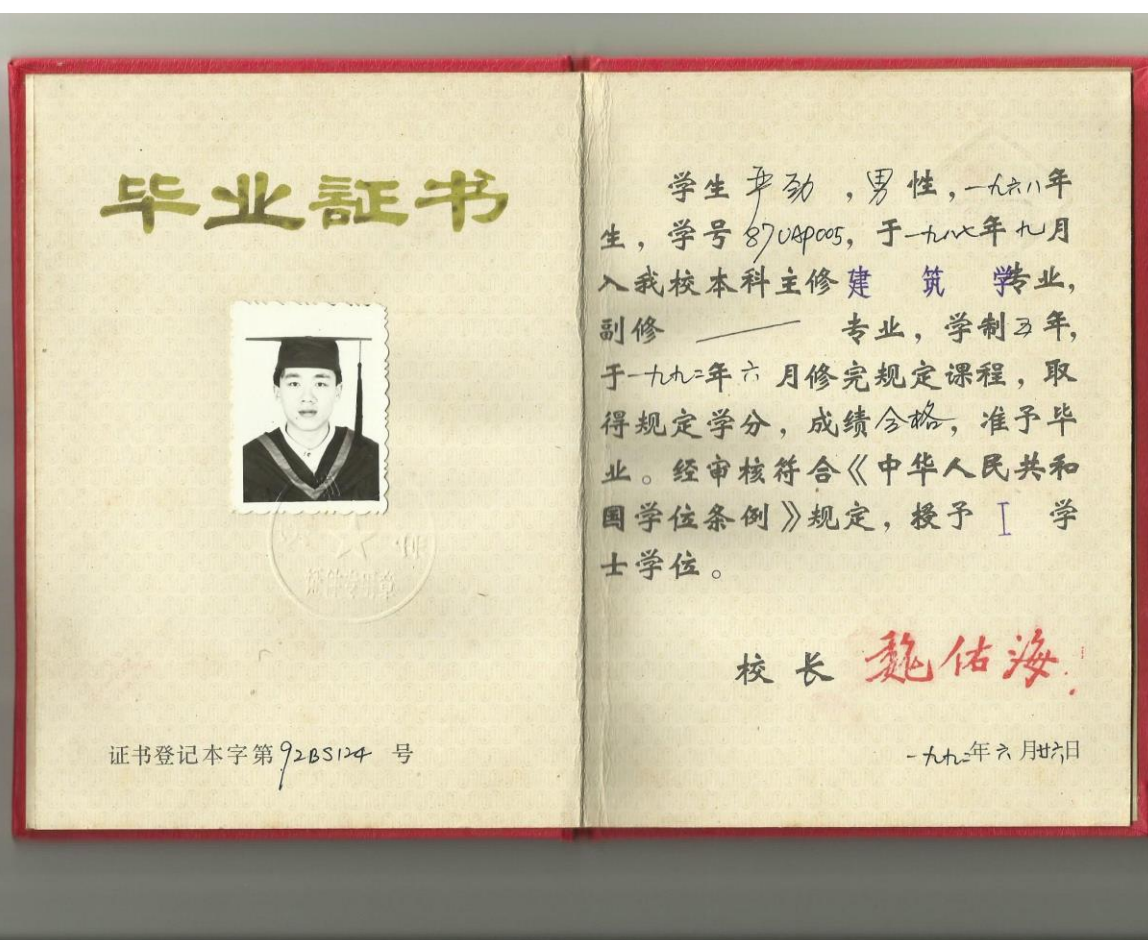 毕业証书
证书登记本字第92BS124号
学生严劲，男性，一九六八年
生，学号87UAP005，于一九八七年九月
入我校本科主修建筑学专业，
副修——专业，学制五年，
于一九九二年六月修完规定课程，取
得规定学分，成绩合格，准予毕
业。经审核符合《中华人民共和
国学位条例》规定，授予工学
士学位。
校长 魏佑海
一九九二年六月廿六日